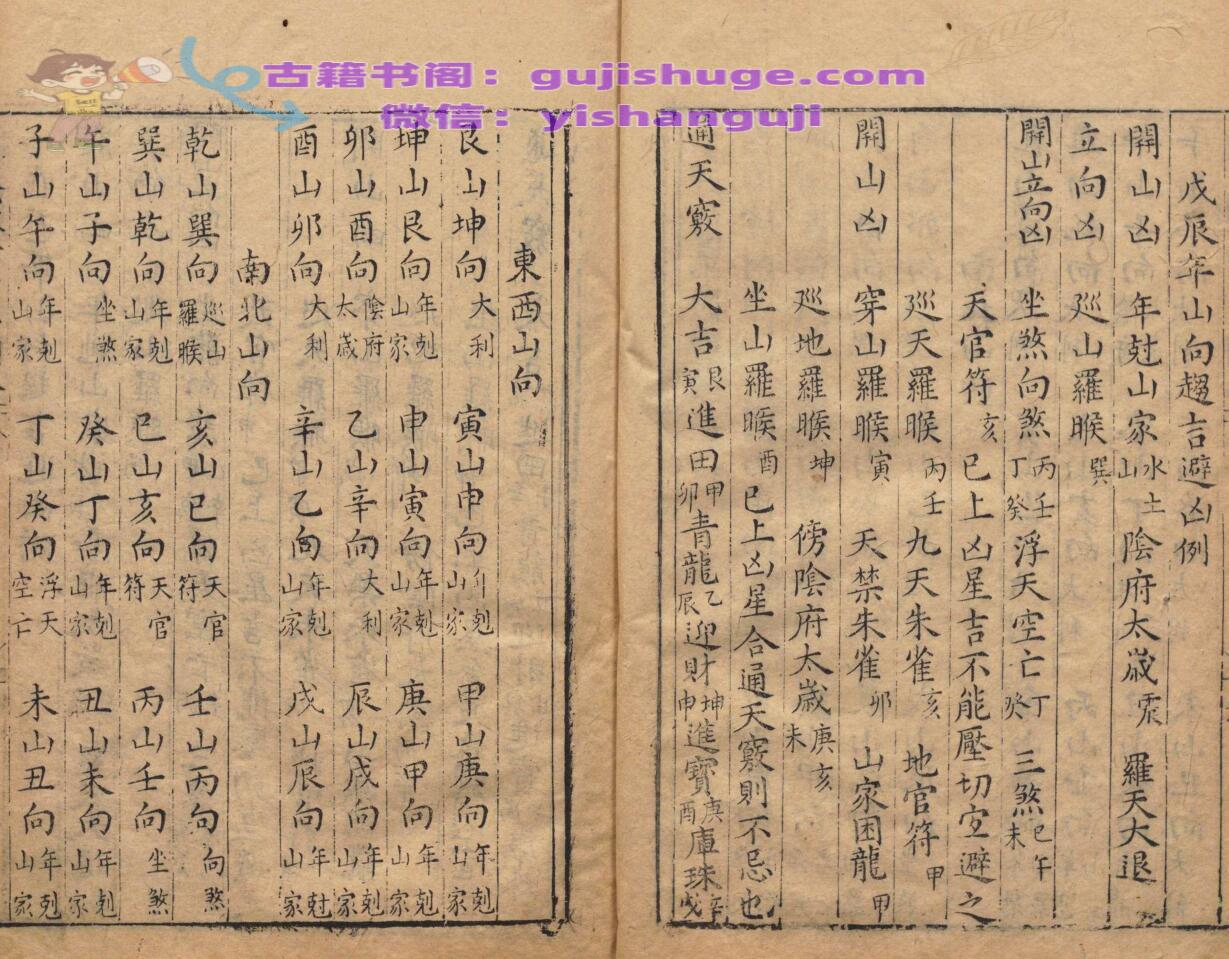 古籍书阁：gujishuge.com
微信：yishanguji
戊辰年山向趨吉避凶例
開山凶 年尅山家水土山 陰府太歲 羅天大退
立向凶 巡山羅睺巽
開山立向凶 坐煞向煞丙壬丁癸 浮天空亡丁癸 三煞巳午未
天官符亥 已上凶星吉不能壓切宜避之
巡天羅睺丙壬 九天朱雀亥 地官符甲
開山凶 穿山羅睺寅 天禁朱雀卯 山家困龍甲
巡地羅睺坤 傍陰府太歲庚亥未
坐山羅睺酉 已上凶星合通天竅則不忌也
通天竅 大吉艮寅進田甲卯青龍乙辰迎財坤申進寶庚酉庫珠辛戌
東西山向
艮山坤向大利 寅山申向年剋山家 甲山庚向年剋山家
坤山艮向年剋山家 申山寅向年剋山家 庚山甲向年剋山家
卯山酉向陰府太歲 乙山辛向大利 辰山戌向年剋山家
酉山卯向大利 辛山乙向年剋山家 戌山辰向年尅山家
南北山向
乾山巽向巡山羅睺 亥山巳向天官符 壬山丙向向煞
巽山乾向年剋山家 巳山亥向天官符 丙山壬向坐煞
午山子向坐煞 癸山丁向年剋山家 丑山未向年剋山家
子山午向年剋山家 丁山癸向浮天空亡 未山丑向年剋山家